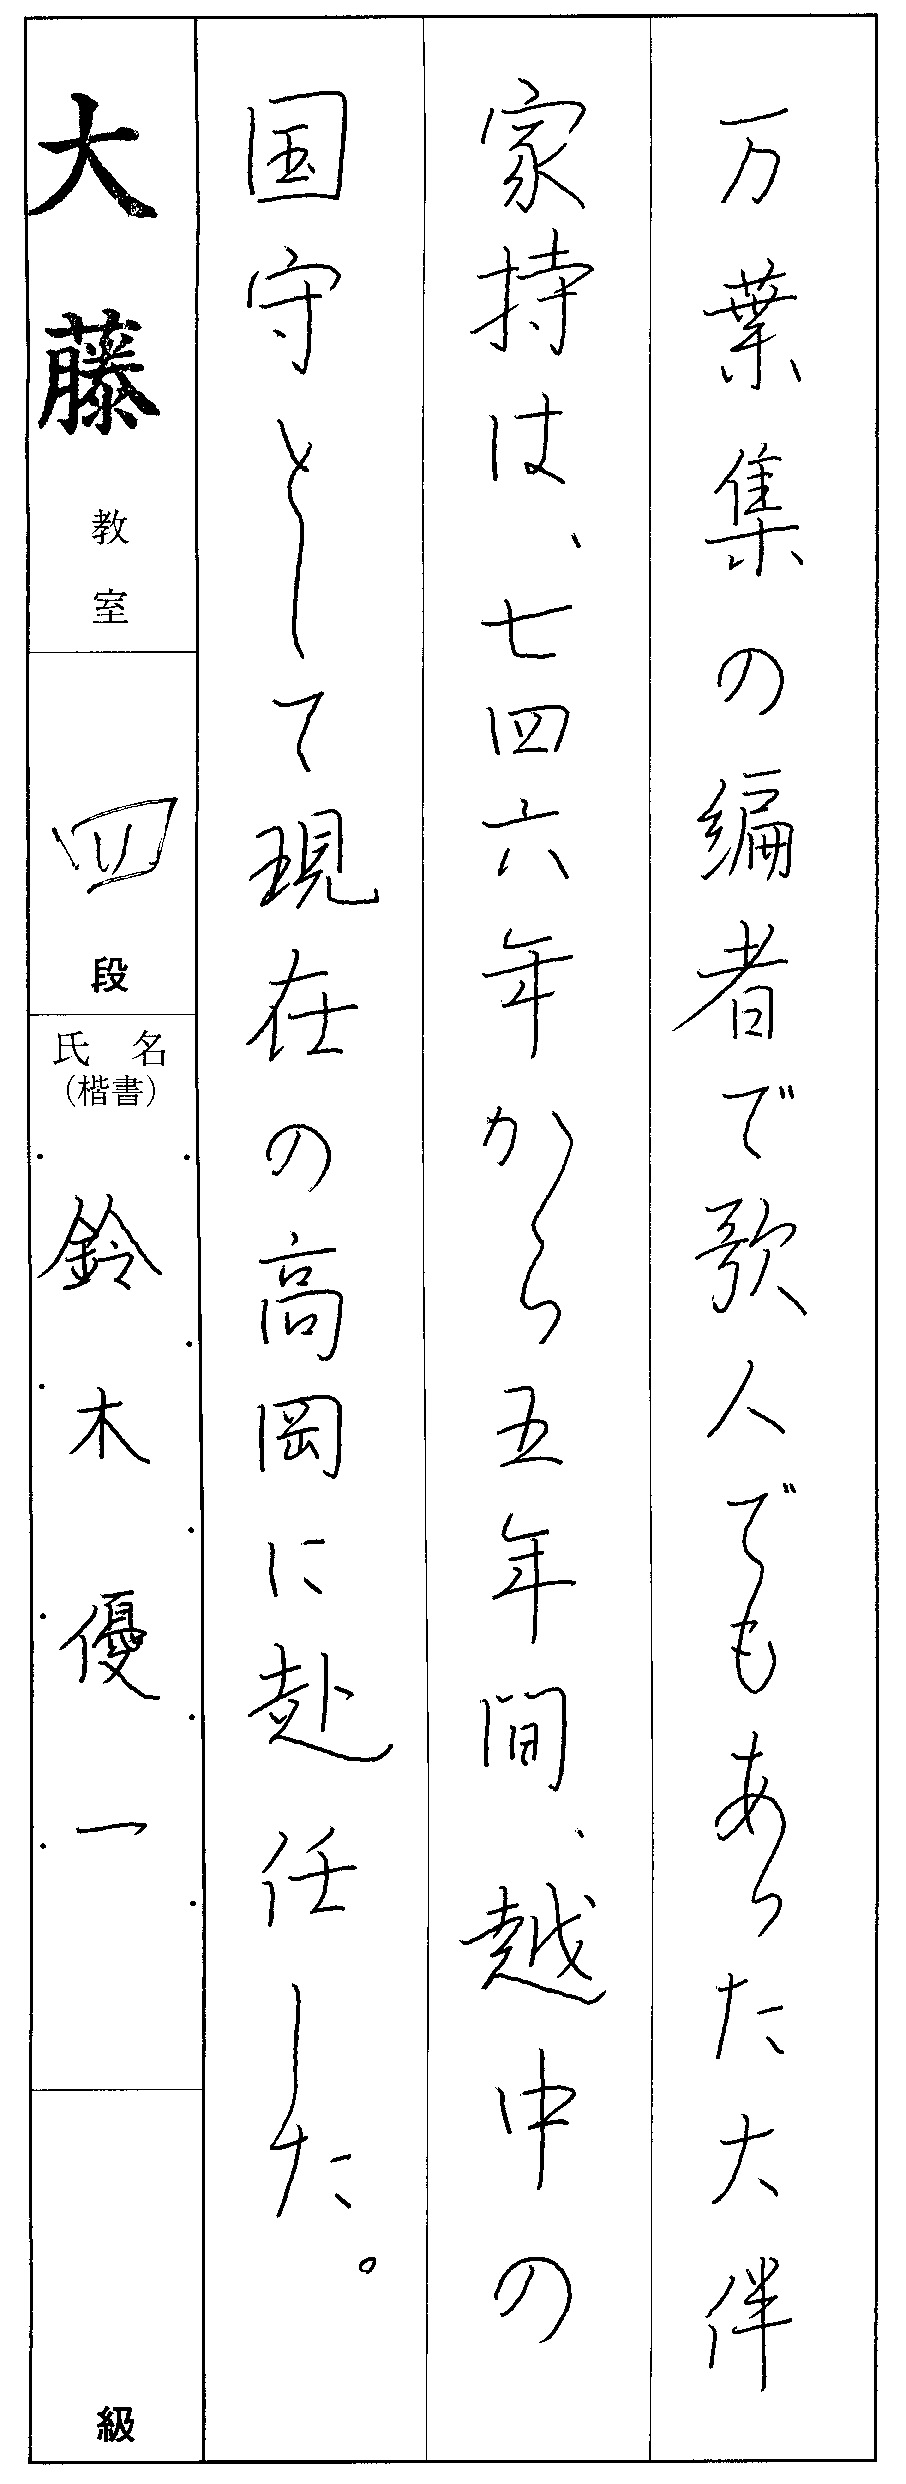 万葉集の編者で歌人でもあった大伴
家持は、七四六年から五年間、越中の
国守として現在の高岡に赴任した。
大藤教室
四段
氏名
(楷書)
鈴木優一
級